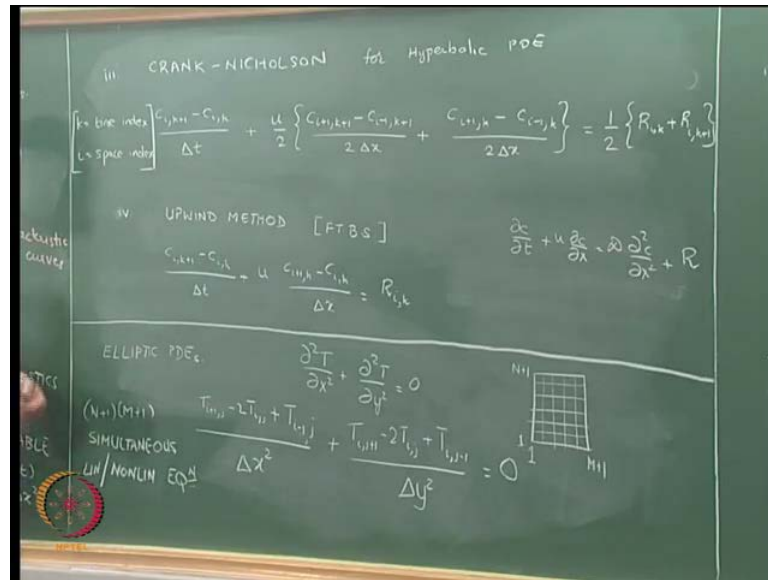 iii. CRANK-NICHOLSON for Hyperbolic PDE
[k = time index
i = space index]
(C_{i,k+1} - C_{i,k})/Δt + u/2 {(C_{i+1,k+1} - C_{i-1,k+1})/(2Δx) + (C_{i+1,k} - C_{i-1,k})/(2Δx)} = 1/2 {R_{i,k} + R_{i,k+1}}
iv UPWIND METHOD [FTBS]
∂c/∂t + u ∂c/∂x = D ∂²c/∂x² + R
(C_{i,k+1} - C_{i,k})/Δt + u (C_{i+1,k} - C_{i,k})/Δx = R_{i,k}
curves
ELLIPTIC PDEs.
∂²T/∂x² + ∂²T/∂y² = 0
N+1
1
1
M+1
(N+1)(M+1)
SIMULTANEOUS
LIN/NONLIN EQN
(T_{i+1,j} - 2T_{i,j} + T_{i-1,j})/Δx² + (T_{i,j+1} - 2T_{i,j} + T_{i,j-1})/Δy² = 0
NPTEL